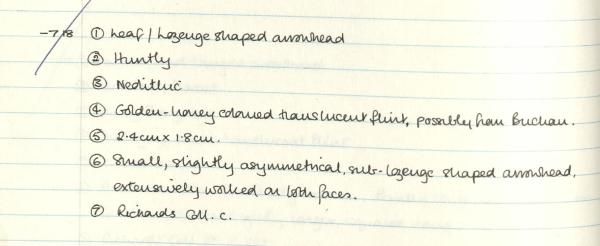 -718 ① Leaf / Lozenge shaped arrowhead
② Huntly
③ Neolithic
④ Golden-honey coloured translucent flint, possibly from Buchan.
⑤ 2.4cm x 1.8cm.
⑥ Small, slightly asymmetrical, sub-lozenge shaped arrowhead,
extensively worked on both faces.
⑦ Richards Coll. c.